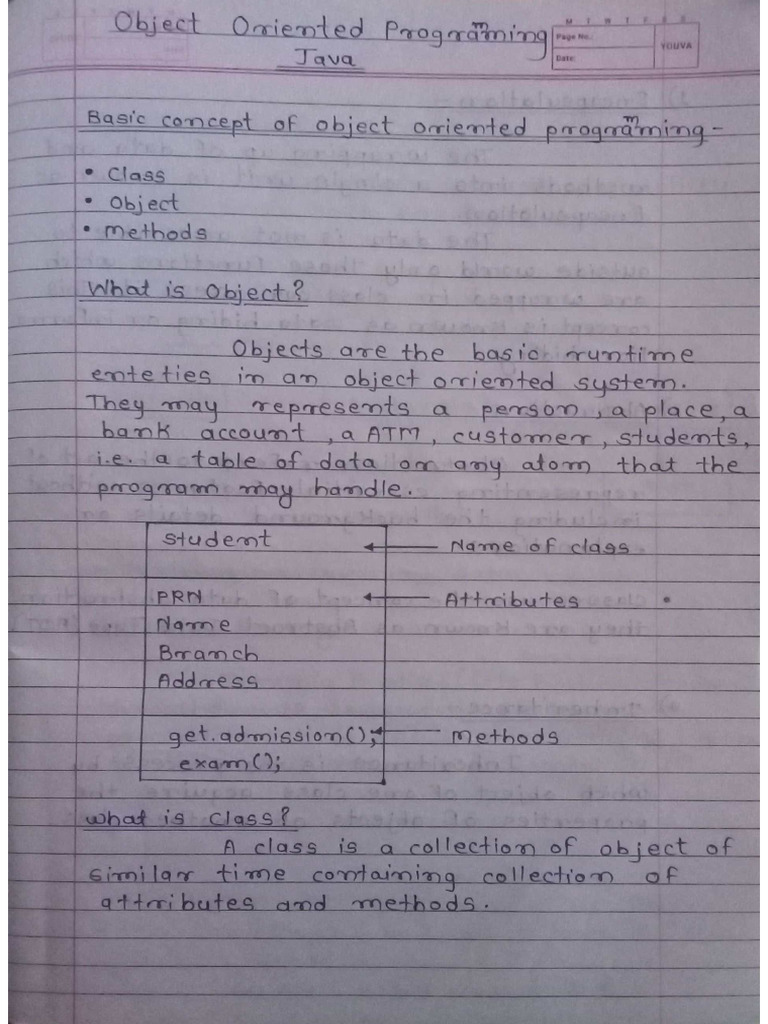 Object Oriented Programming
Java
M T W T F S S
Page No.:
Date:
YOUVA
Basic concept of object oriented programming -
• Class
• Object
• Methods
What is Object?
Objects are the basic runtime
enteties in an object oriented system.
They may represents a person, a place, a
bank account, a ATM, customer, students,
i.e. a table of data or any atom that the
program may handle.
Student ← Name of class
PRN ← Attributes
Name
Branch
Address
get.admission(); ← Methods
exam();
What is Class?
A class is a collection of object of
similar time containing collection of
attributes and methods.